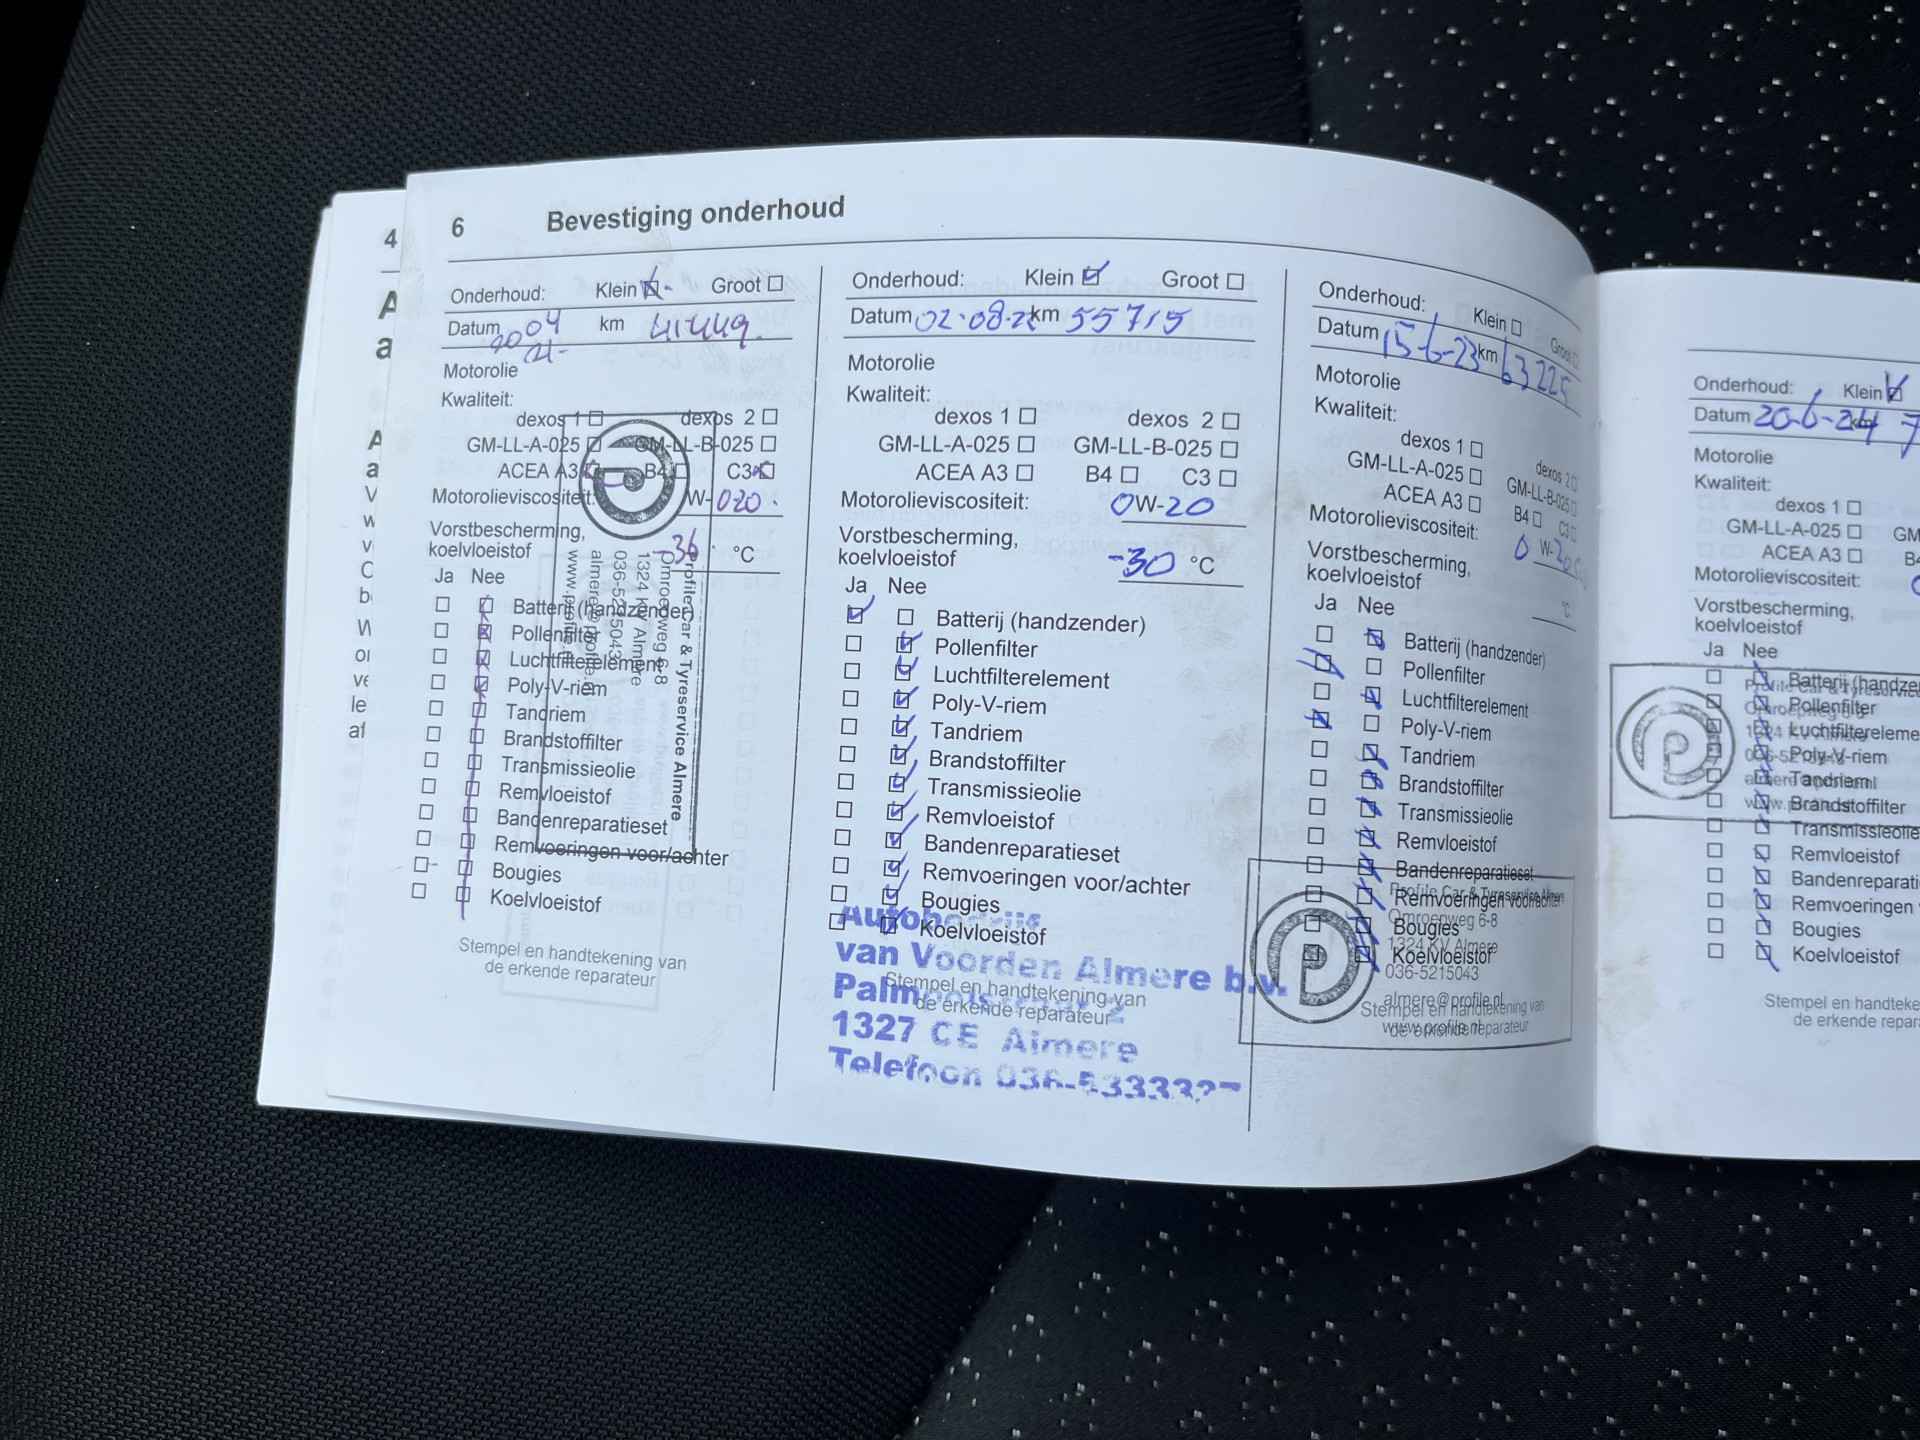 4
A
a
A
a
V
w
v
O
b
W
or
ve
le
af
6 Bevestiging onderhoud
Onderhoud: Klein Groot
Datum 20 04 21- km
Motorolie
Kwaliteit:
dexos 1 dexos 2
GM-LL-A-025 GM-LL-B-025
ACEA A3 B4 C3
Motorolieviscositeit: W-020
Vorstbescherming,
koelvloeistof -36 °C
Ja Nee
Batterij (handzender)
Pollenfilter
Luchtfilterelement
Poly-V-riem
Tandriem
Brandstoffilter
Transmissieolie
Remvloeistof
Bandenreparatieset
Remvoeringen voor/achter
Bougies
Koelvloeistof
Profile Car & Tyreservice Almere
Omroepweg 6-8
1324 KV Almere
036-5215043
almere@profile.nl
www.profile.nl
Stempel en handtekening van
de erkende reparateur
Onderhoud: Klein Groot
Datum 02-08-22 km 55715
Motorolie
Kwaliteit:
dexos 1 dexos 2
GM-LL-A-025 GM-LL-B-025
ACEA A3 B4 C3
Motorolieviscositeit: 0W-20
Vorstbescherming,
koelvloeistof -30 °C
Ja Nee
Batterij (handzender)
Pollenfilter
Luchtfilterelement
Poly-V-riem
Tandriem
Brandstoffilter
Transmissieolie
Remvloeistof
Bandenreparatieset
Remvoeringen voor/achter
Bougies
Koelvloeistof
Autobedrijf
van Voorden Almere b.v.
1327 CE Almere
Telefoon
Stempel en handtekening van
de erkende reparateur
Onderhoud: Klein Groot
Datum 15-6-23 km 63225
Motorolie
Kwaliteit:
dexos 1 dexos 2
GM-LL-A-025 GM-LL-B-025
ACEA A3 B4 C3
Motorolieviscositeit: 0 W-20
Vorstbescherming,
koelvloeistof °C
Ja Nee
Batterij (handzender)
Pollenfilter
Luchtfilterelement
Poly-V-riem
Tandriem
Brandstoffilter
Transmissieolie
Remvloeistof
Bandenreparatieset
Remvoeringen voor/achter
Bougies
Koelvloeistof
Profile Car & Tyreservice Almere
Omroepweg 6-8
1324 KV Almere
036-5215043
almere@profile.nl
www.profile.nl
Stempel en handtekening van
de erkende reparateur
Onderhoud: Klein
Datum 20-6-24 km 7
Motorolie
Kwaliteit:
dexos 1
GM-LL-A-025 GM
ACEA A3 B4
Motorolieviscositeit: 0
Vorstbescherming,
koelvloeistof
Ja Nee
Batterij (handze
Pollenfilter
Luchtfiltereleme
Poly-V-riem
Tandriem
Brandstoffilter
Transmissieolie
Remvloeistof
Bandenreparati
Remvoeringen v
Bougies
Koelvloeistof
Profile Car & Tyreservice
Stempel en handteke
de erkende repar